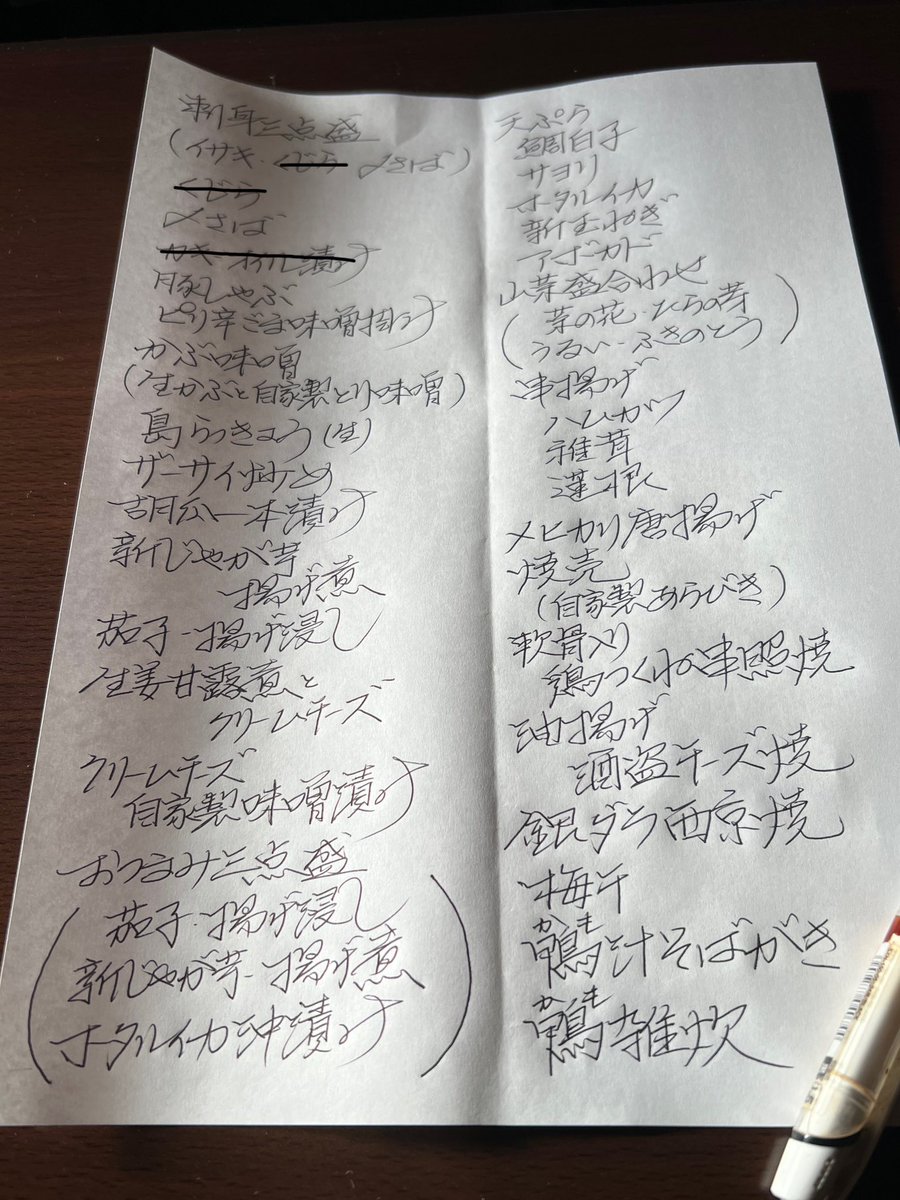 刺身三点盛
(イサキ・くじら 〆さば)
くじら
〆さば
カキ オイル漬け
豚しゃぶ
ピリ辛ごま味噌掛け
かぶ味噌
(生かぶと自家製とり味噌)
島らっきょう(生)
ザーサイ炒め
胡瓜一本漬け
新じゃが芋
揚げ煮
茄子・揚げ浸し
生姜甘露煮と
クリームチーズ
クリームチーズ
自家製味噌漬け
おつまみ三点盛
茄子・揚げ浸し
新じゃが芋・揚げ煮
ホタルイカ沖漬け
天ぷら
鯛白子
サヨリ
ホタルイカ
新玉ねぎ
アボカド
山菜盛合わせ
(菜の花・たらの芽
うるい・ふきのとう)
串揚げ
ハムカツ
椎茸
蓮根
メヒカリ唐揚げ
焼売
(自家製あらびき)
軟骨入り
鶏つくねの串照焼
油揚げ
酒盗チーズ焼
銀ダラ西京焼
梅干
かも
鴨汁そばがき
かも
鴨雑炊